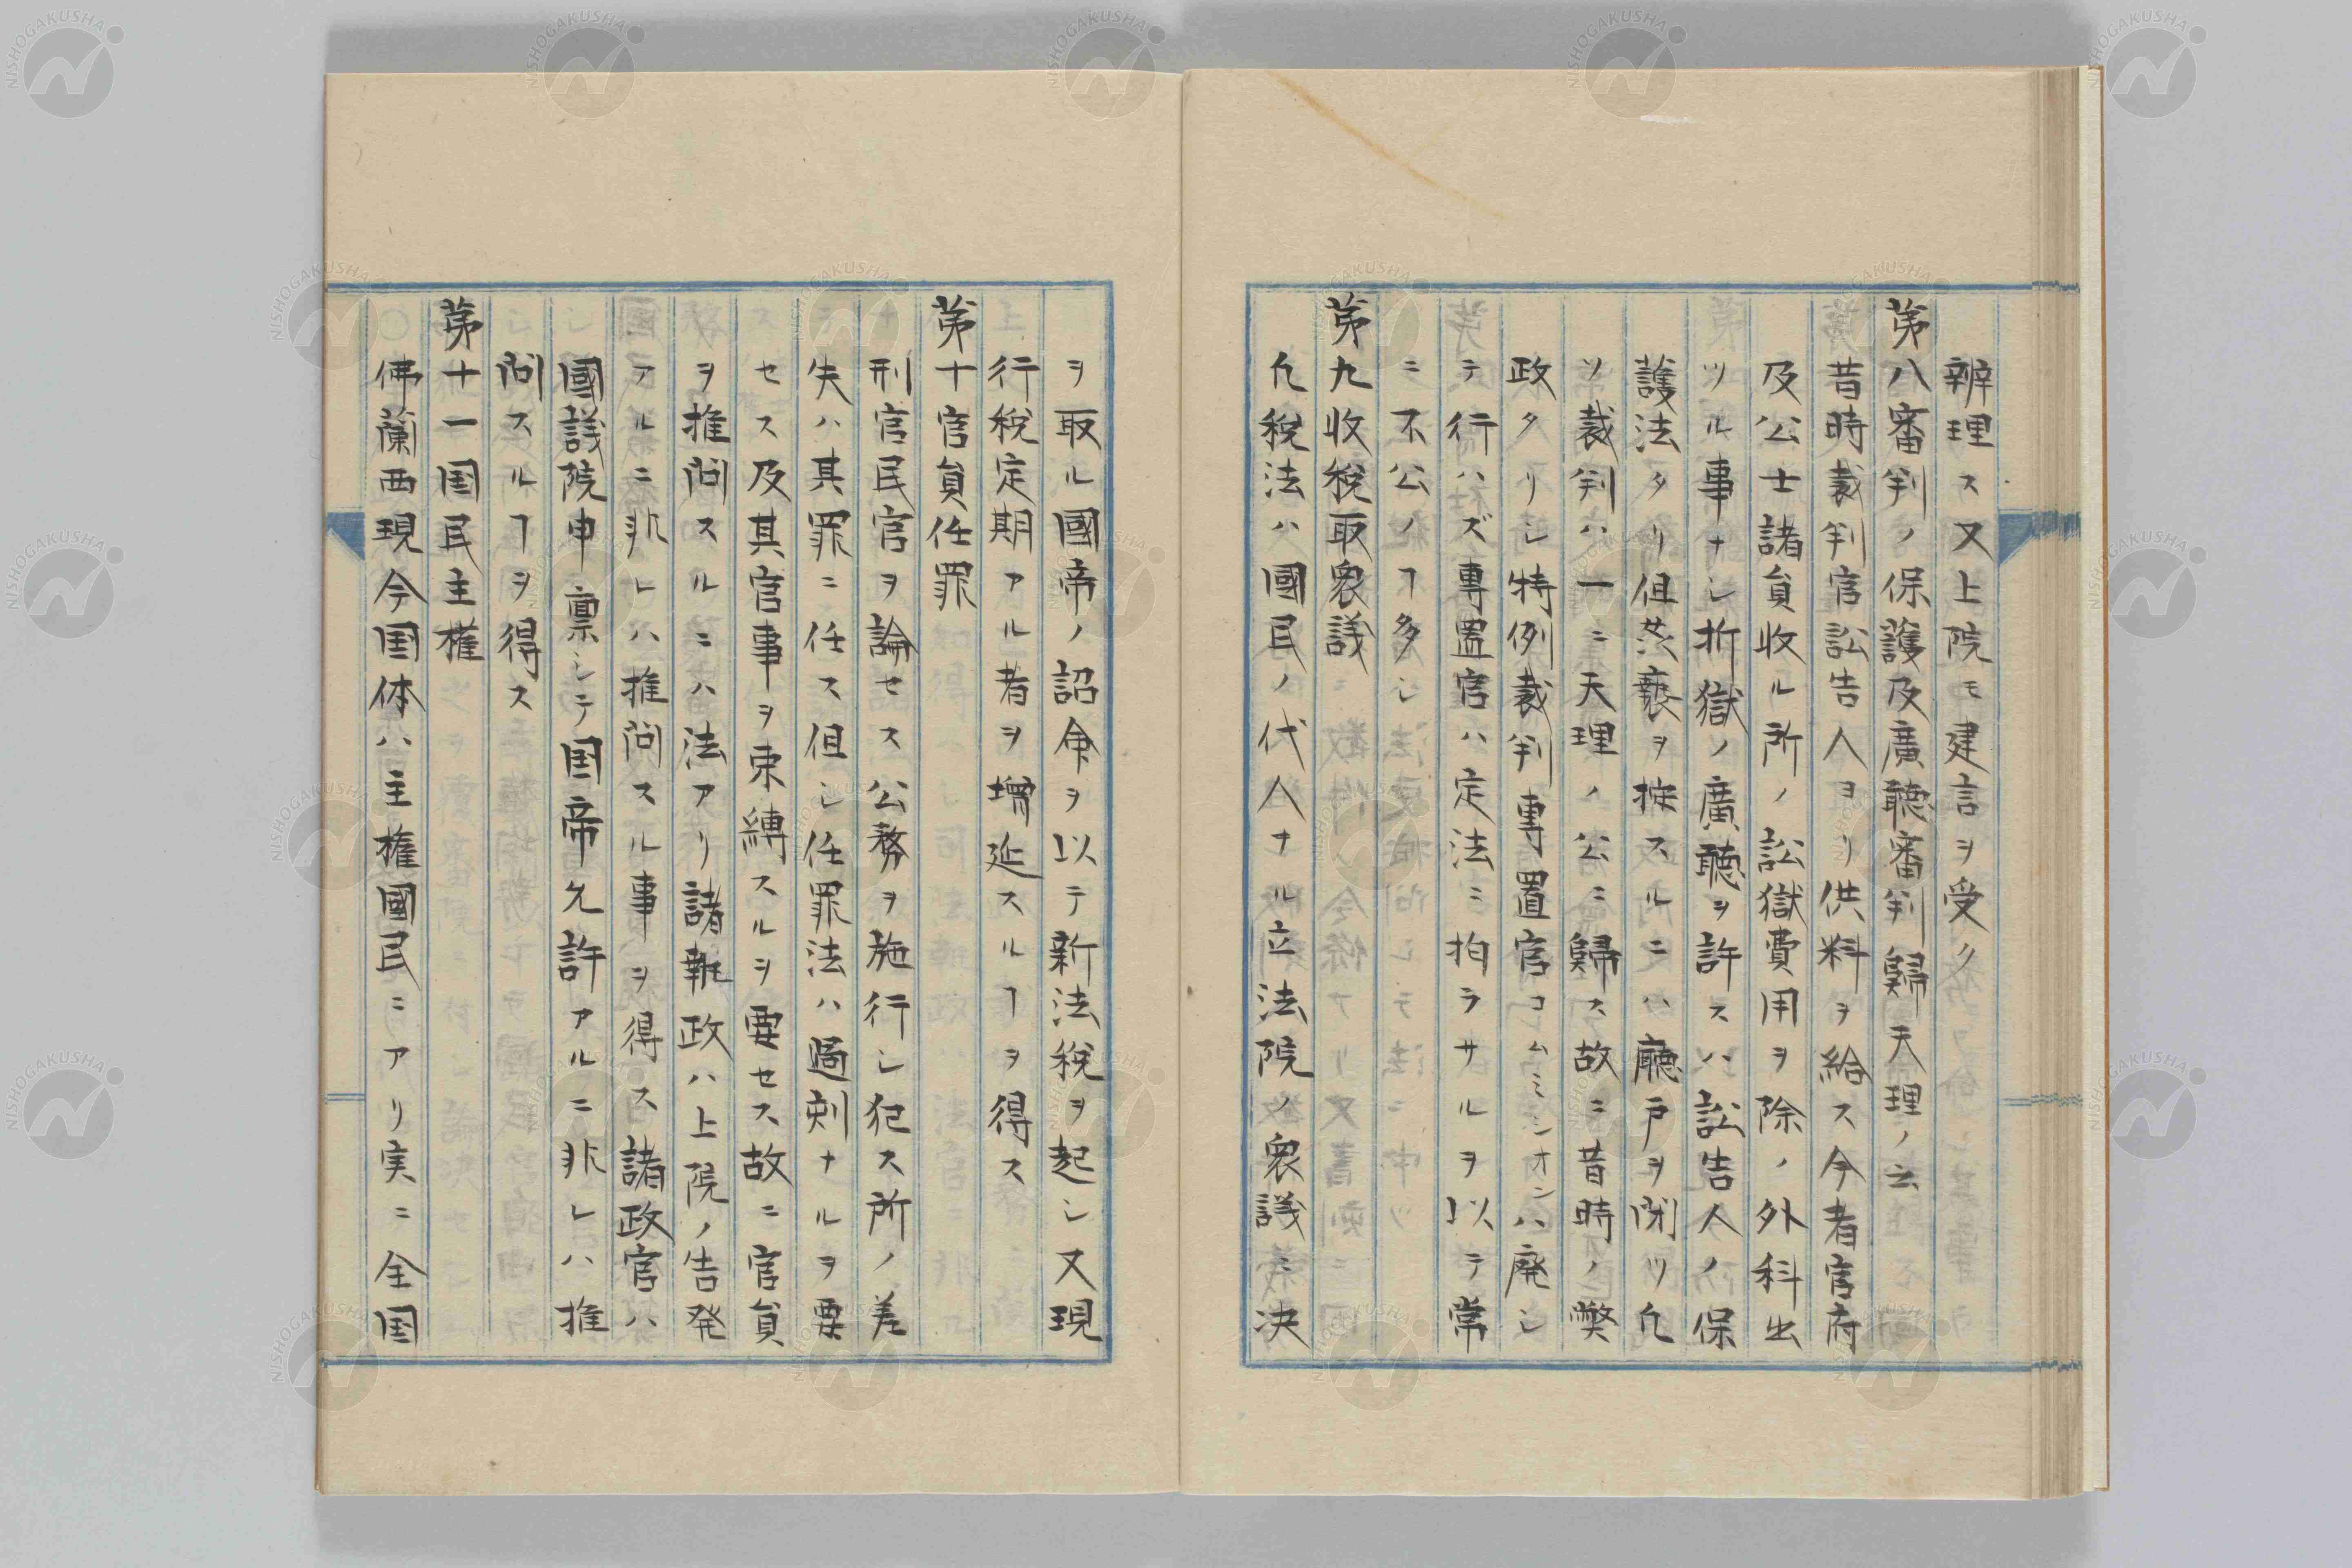 辨理ス又上院モ建言ヲ受ク
第八審判ノ保護及廣聴審判歸天理ノ云
昔時裁判官訟告人ヨリ供料ヲ給ス今者官府
及公士諸員收ル所ノ訟獄費用ヲ除ノ外科出
ツル事ナシ折獄ノ廣聴ヲ許スハ訟告人ノ保
護法タリ但共褻ヲ挨スルニハ廳戸ヲ閉ツ凢
ソ裁判ハ一ニ天理ノ公ニ歸ス故ニ昔時ノ弊
政タリシ特例裁判専置官コムミシオンハ廃シ
テ行ハズ専置官ハ定法ミ拍ラサルヲ以テ常
ニ不公ノヿ多シ
第九收稅取衆議
凢稅法ハ國民ノ代人ナル立法院ノ衆議ミ决
ヲ取ル國帝ノ詔命ヲ以テ新法稅ヲ起シ又現
行稅定期アル者ヲ増延スルヿヲ得ス
第十官員任罪
刑官民官ヲ論セス公務ヲ施行シ犯ス所ノ差
失ハ其罪ニ任ス但シ任罪法ハ過刻ナルヲ要
セス及其官事ヲ束縛スルヲ要セス故ニ官員
ヲ推问スルニハ法アリ諸執政ハ上院ノ告発
アルニ非レハ推问スル事ヲ得ス諸政官ハ
國議院申禀シテ国帝允許アルニ非レハ推
问スルヿヲ得ス
第十一国民主權
佛蘭西現今国体ハ主權國民ニアリ実ニ全国
NISHOGAKUSHA